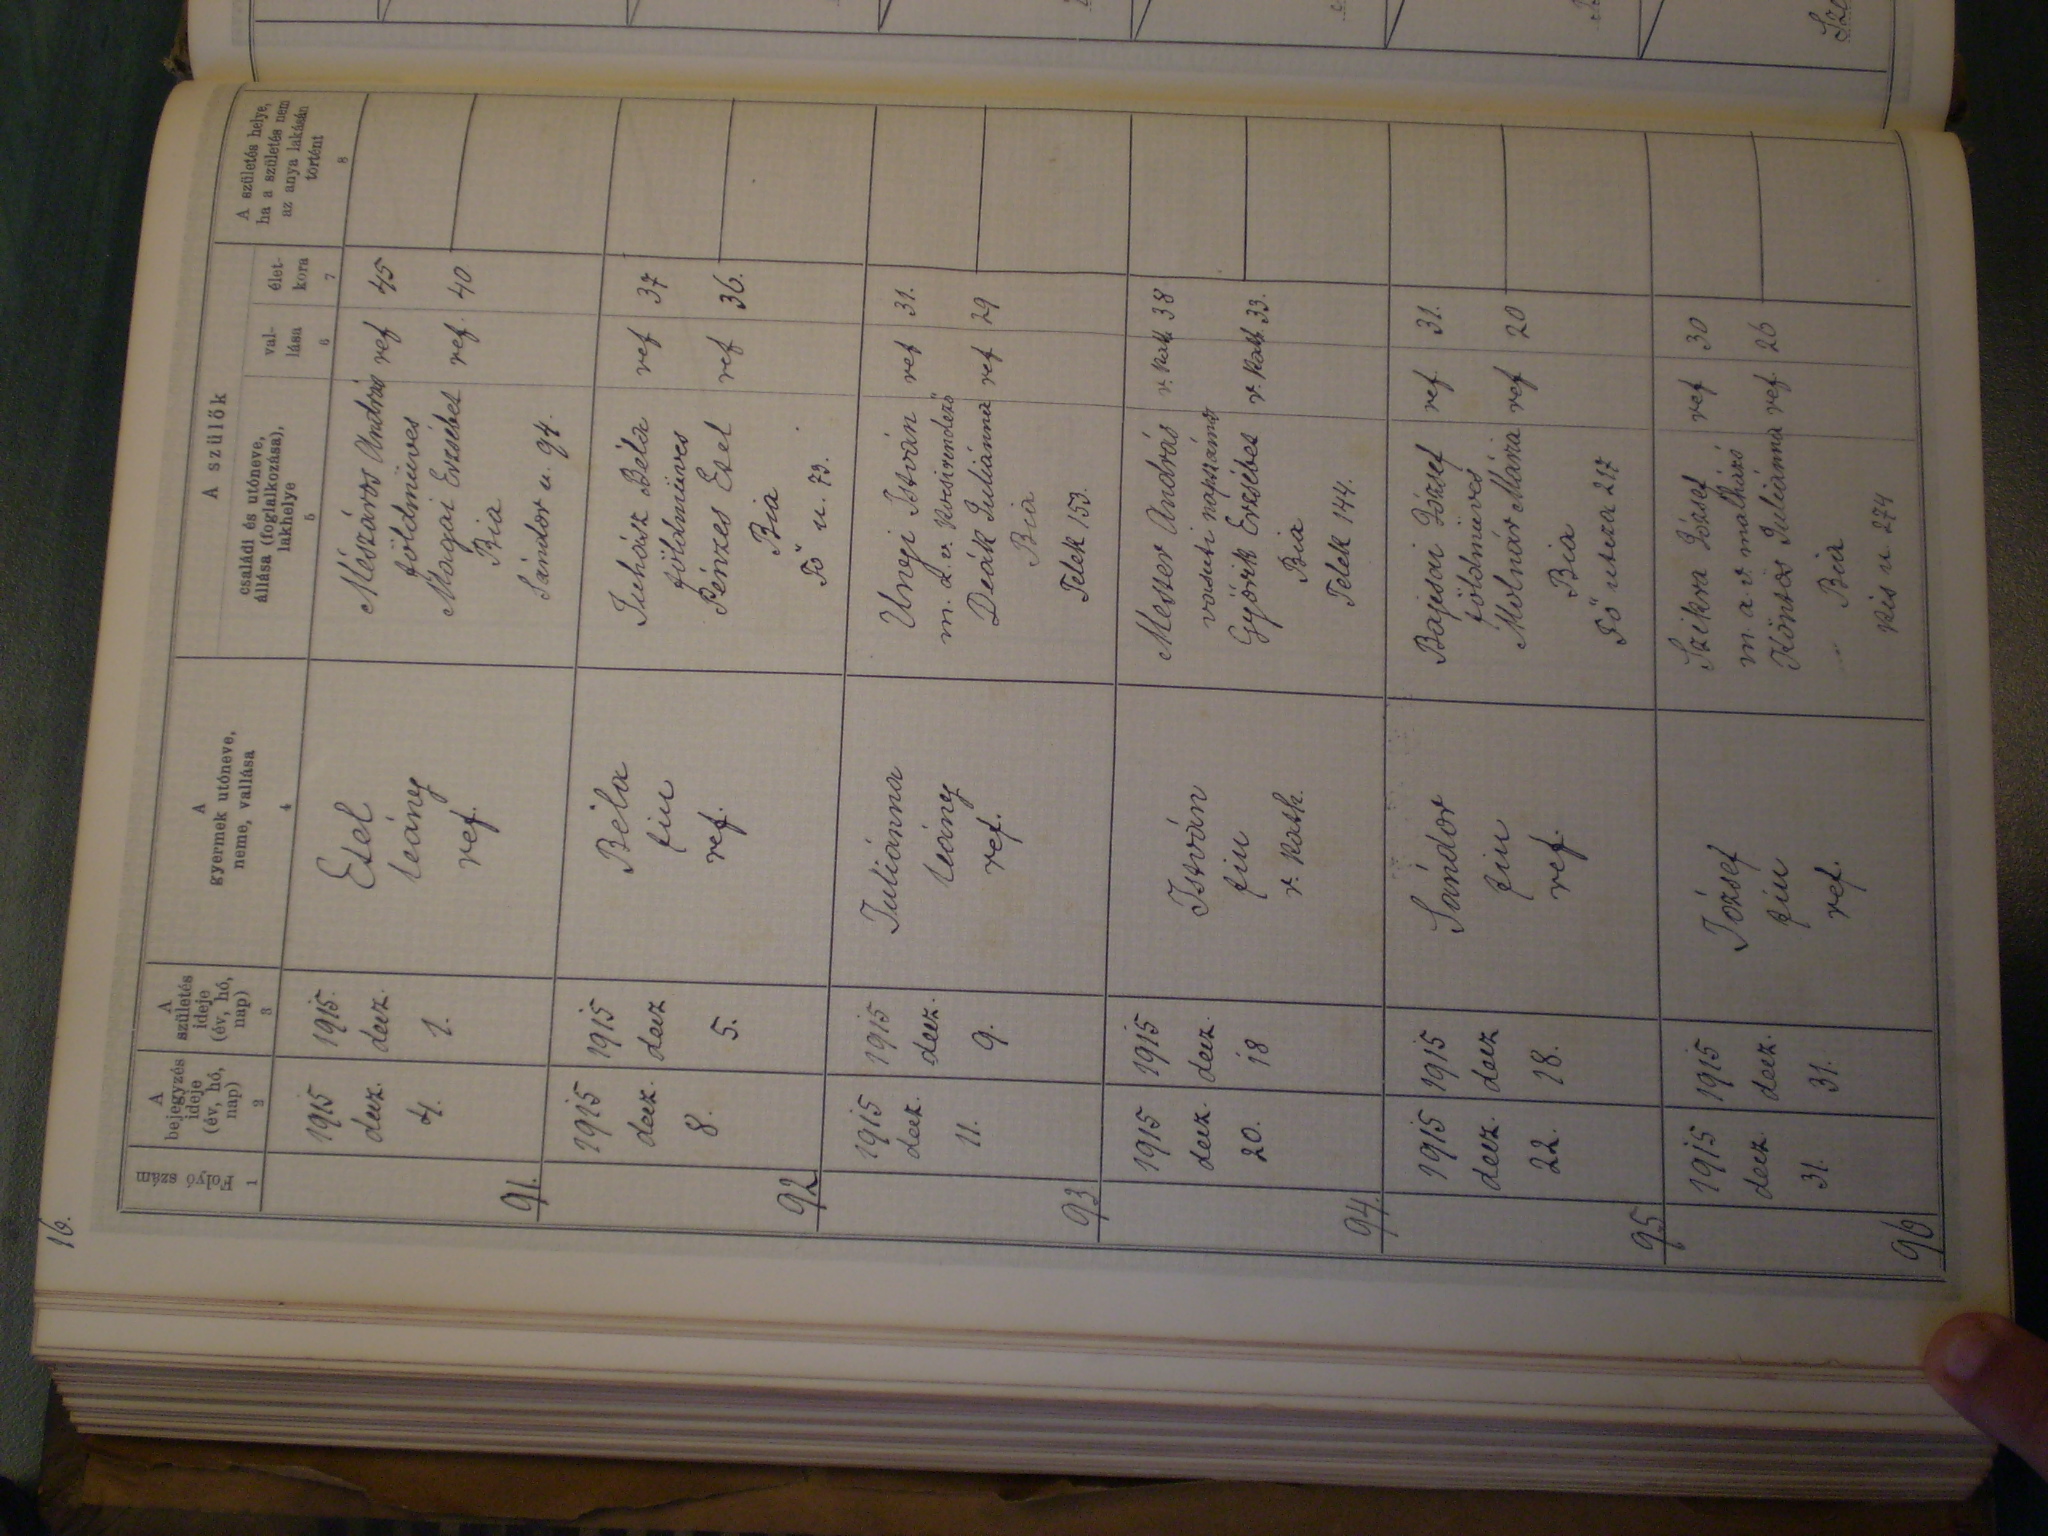 16.
Folyó szám
A bejegyzés ideje (év, hó, nap)
A születés ideje (év, hó, nap)
A gyermek utóneve, neme, vallása
A szülők
családi és utóneve, állása (foglalkozása), lakhelye
vallása
életkora
A születés helye, ha a születés nem az anya lakásán történt
1 2 3 4 5 6 7 8
91.
1915 decz. 4.
1915. decz. 1.
Etel
leány
ref.
Mészáros András ref 45
földmüves
Magai Erzsébet ref. 40
Bia
Sándor u. 94.
92
1915 decz. 8.
1915 decz 5.
Béla
fiu
ref.
Juhász Béla ref 37
földmüves
Pénzes Etel ref 36.
Bia
Fő u. 73.
93
1915 decz. 11.
1915 decz. 9.
Juliánna
leány
ref.
Ungi István ref 31.
m. á. v. kocsirendező
Deák Juliánna ref 29
Bia
Telek 153.
94.
1915 decz. 20.
1915 decz. 18
István
fiu
r. kath.
Messer András r. kath 38
vasuti napszámos
Györik Erzsébet r. kath. 33.
Bia
Telek 144.
95
1915 decz. 22.
1915 decz 18.
Sándor
fiu
ref.
Bajsai József ref 31.
földmüves
Molnár Mária ref 20
Bia
Fő utcza 217
96
1915 decz 31.
1915 decz. 31.
József
fiu
ref.
Szikra József ref 30
m. á. v.
Köntös Juliánna ref. 26
Bia
Kis u 274